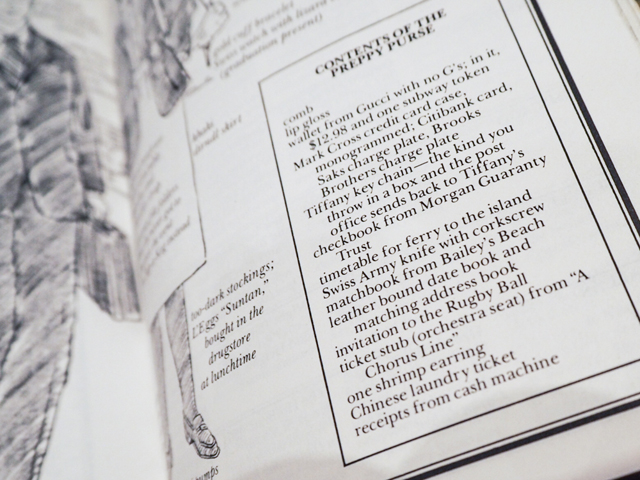 gold cuff bracelet
watch with lizard
(graduation present)
skirt
too-dark stockings;
L'Eggs "Suntan,"
bought in the
drugstore
at lunchtime
CONTENTS OF THE
PREPPY PURSE
comb
lip gloss
wallet from Gucci with no G's; in it,
$12.98 and one subway token
Mark Cross credit card case,
monogrammed; Citibank card,
Saks charge plate, Brooks
Brothers charge plate
Tiffany key chain—the kind you
throw in a box and the post
office sends back to Tiffany's
checkbook from Morgan Guaranty
Trust
timetable for ferry to the island
Swiss Army knife with corkscrew
matchbook from Bailey's Beach
leather bound date book and
matching address book
invitation to the Rugby Ball
ticket stub (orchestra seat) from "A
Chorus Line"
one shrimp earring
Chinese laundry ticket
receipts from cash machine